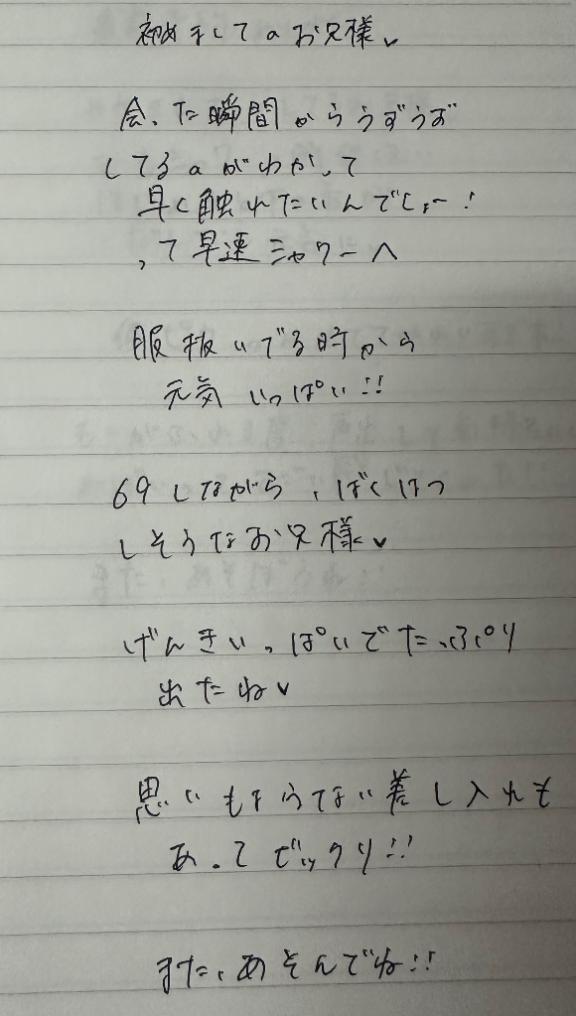 初めましてのお兄様♥
会った瞬間からうずうず
してるのがわかって
早く触れたいんでしょー!
って早速シャワーへ
服抜いでる時から
元気いっぱい!!
69しながら、ばくはつ
しそうなお兄様♥
げんきいっぱいでたっぷり
出たね♥
思いもよらない差し入れも
あってビックリ!!
また、あそんでね!!